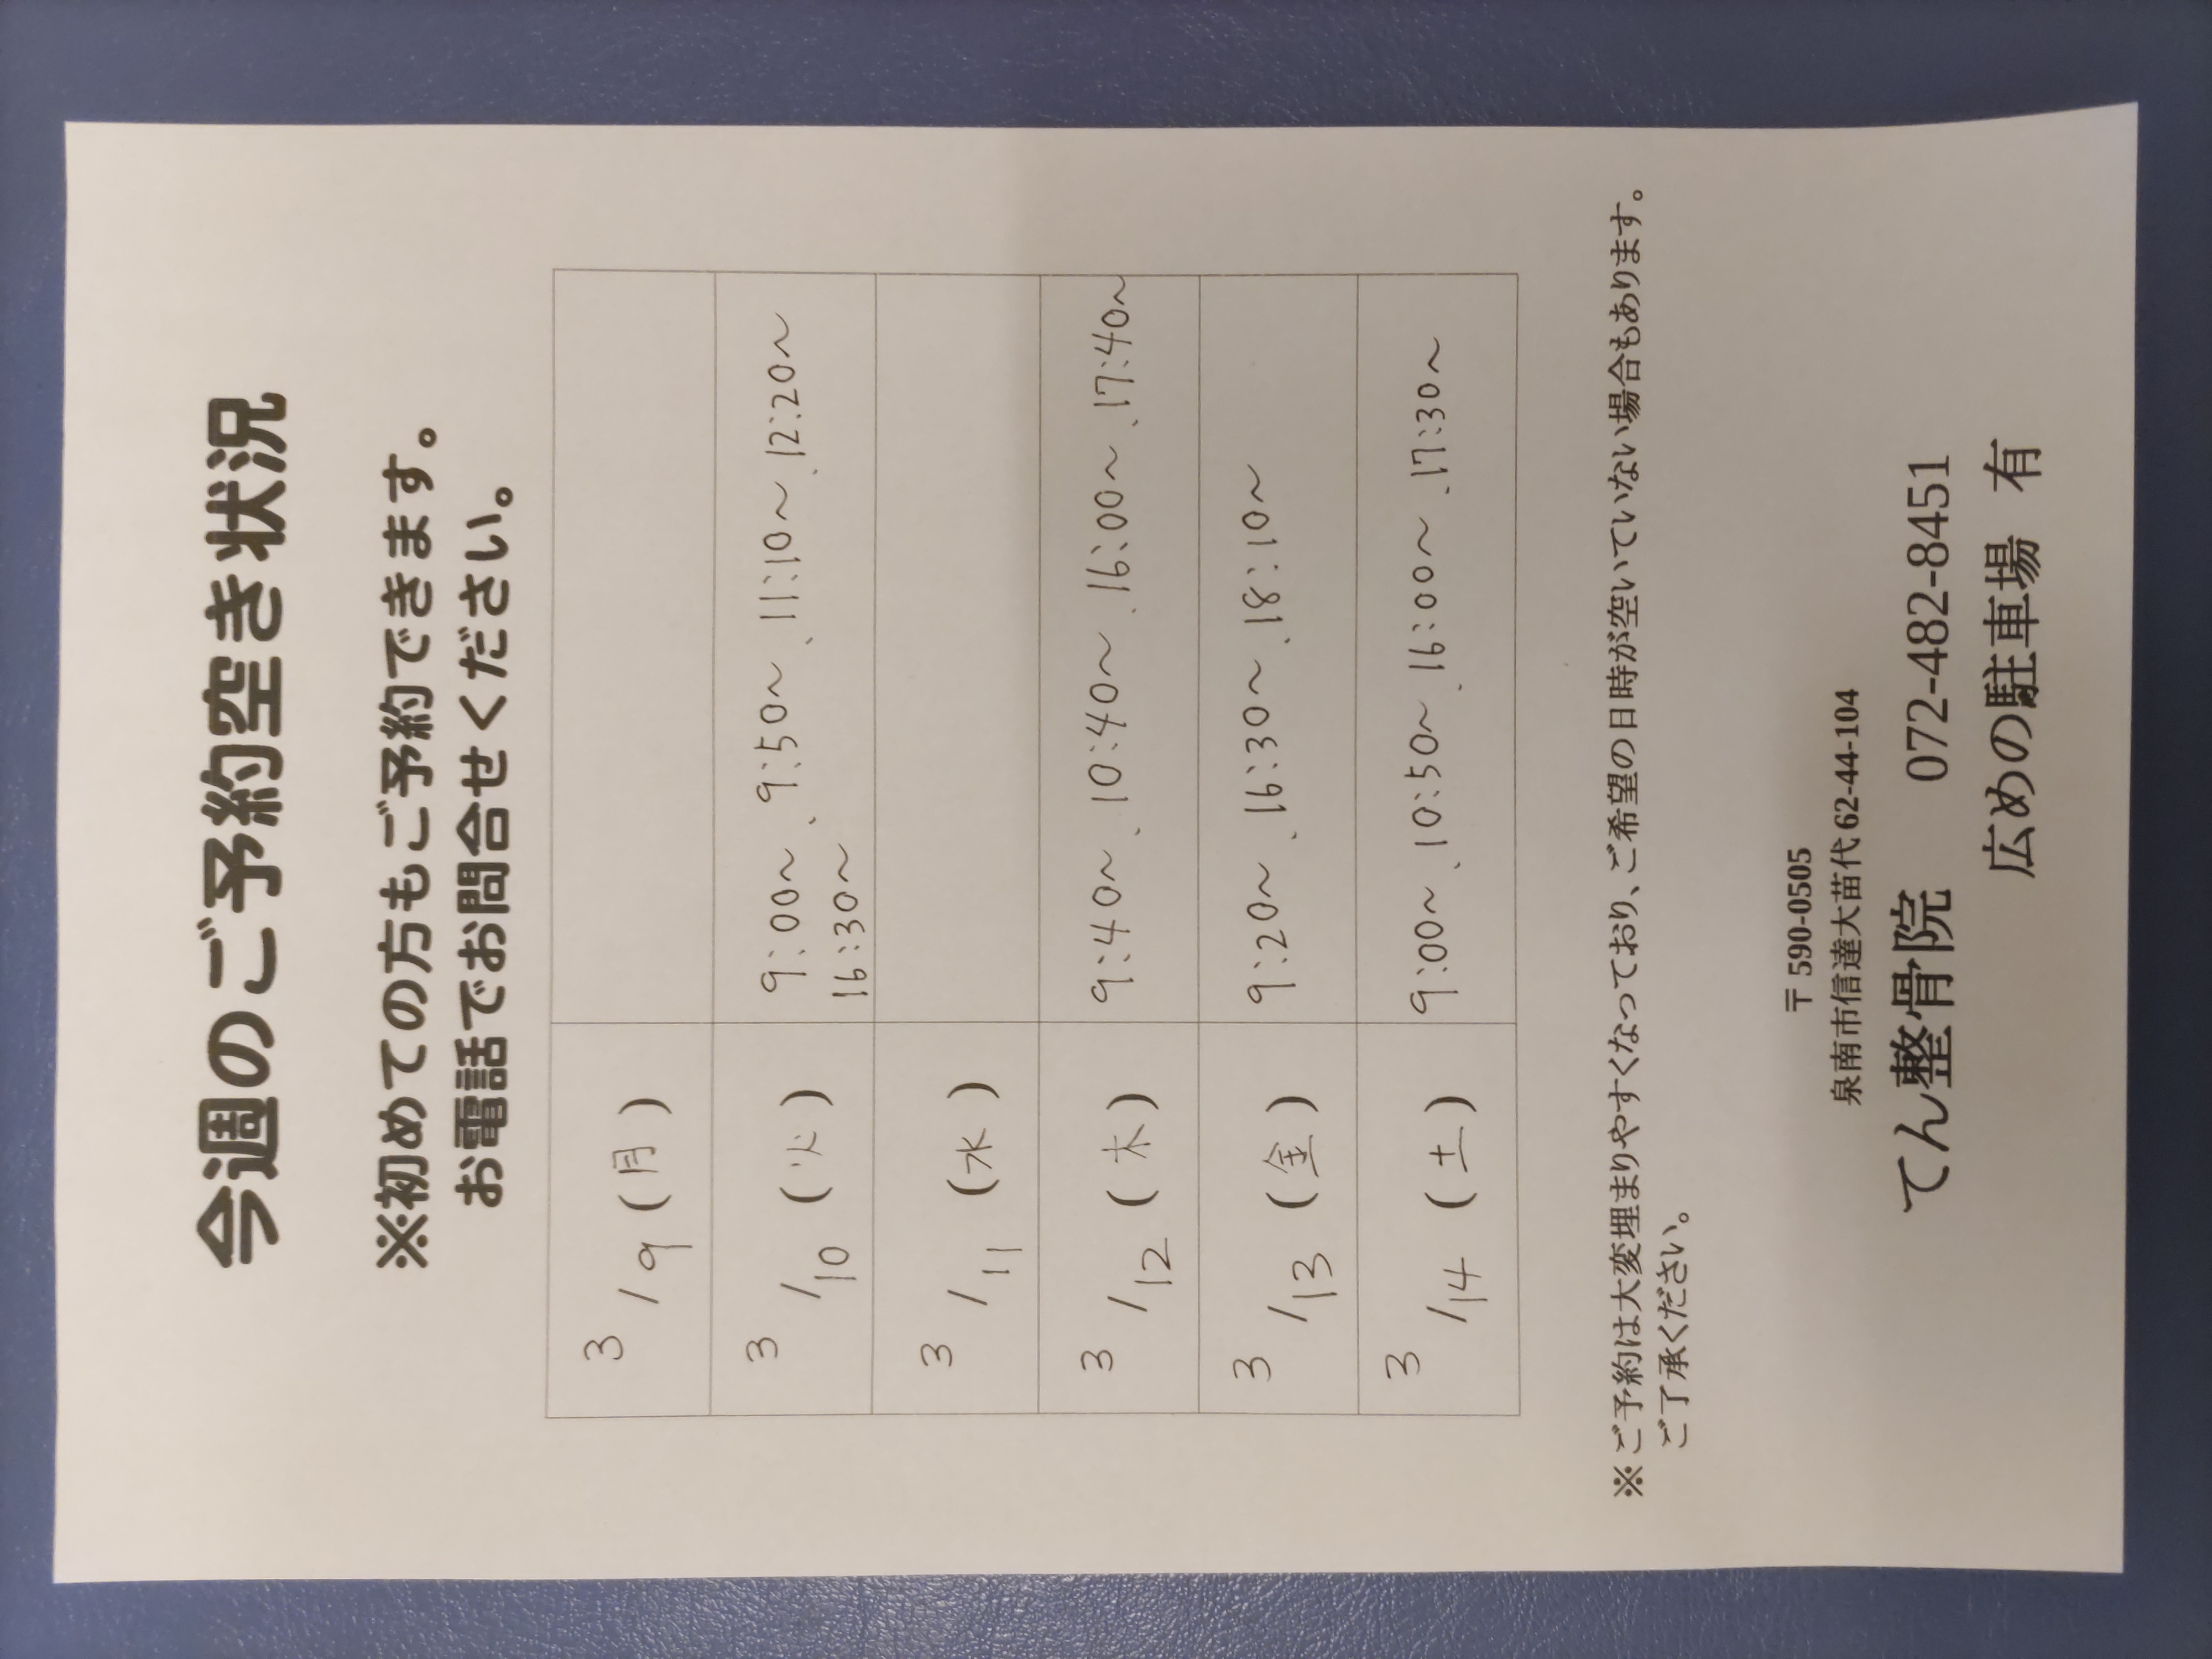 今週のご予約空き状況
※初めての方もご予約できます。
お電話でお問合せください。
3/9(月)
3/10(火) 9:00～、9:50～、11:10～、12:20～
16:30～
3/11(水)
3/12(木) 9:40～、10:40～、16:00～、17:40～
3/13(金) 9:20～、16:30～、18:10～
3/14(土) 9:00～、10:50～、16:00～、17:30～
※ご予約は大変埋まりやすくなっており、ご希望の日時が空いていない場合もあります。
ご了承ください。
〒590-0505
泉南市信達大苗代 62-44-104
てん整骨院 072-482-8451
広めの駐車場 有